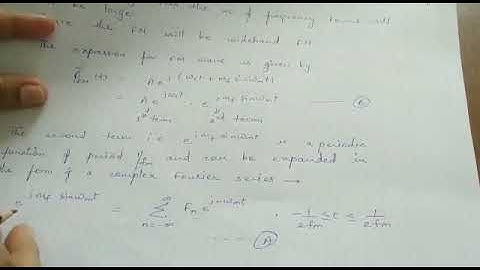 be large. the no of frequency terms will
the FM will be wideband FM
The expression for FM wave is given by
(t) = A e^j(ωct + mf sinωmt)
= A e^jωct . e^jmf sinωmt —— ⓒ
1st term 2nd term
The second term i.e e^jmf sinωmt is a periodic
function of period 1/fm and can be expanded in
the form of a complex Fourier series →
e^jmf sinωmt = ∑ n=-∞ ∞ Fn e^jnωmt , -1/2fm ≤ t ≤ 1/2fm
---- Ⓐ